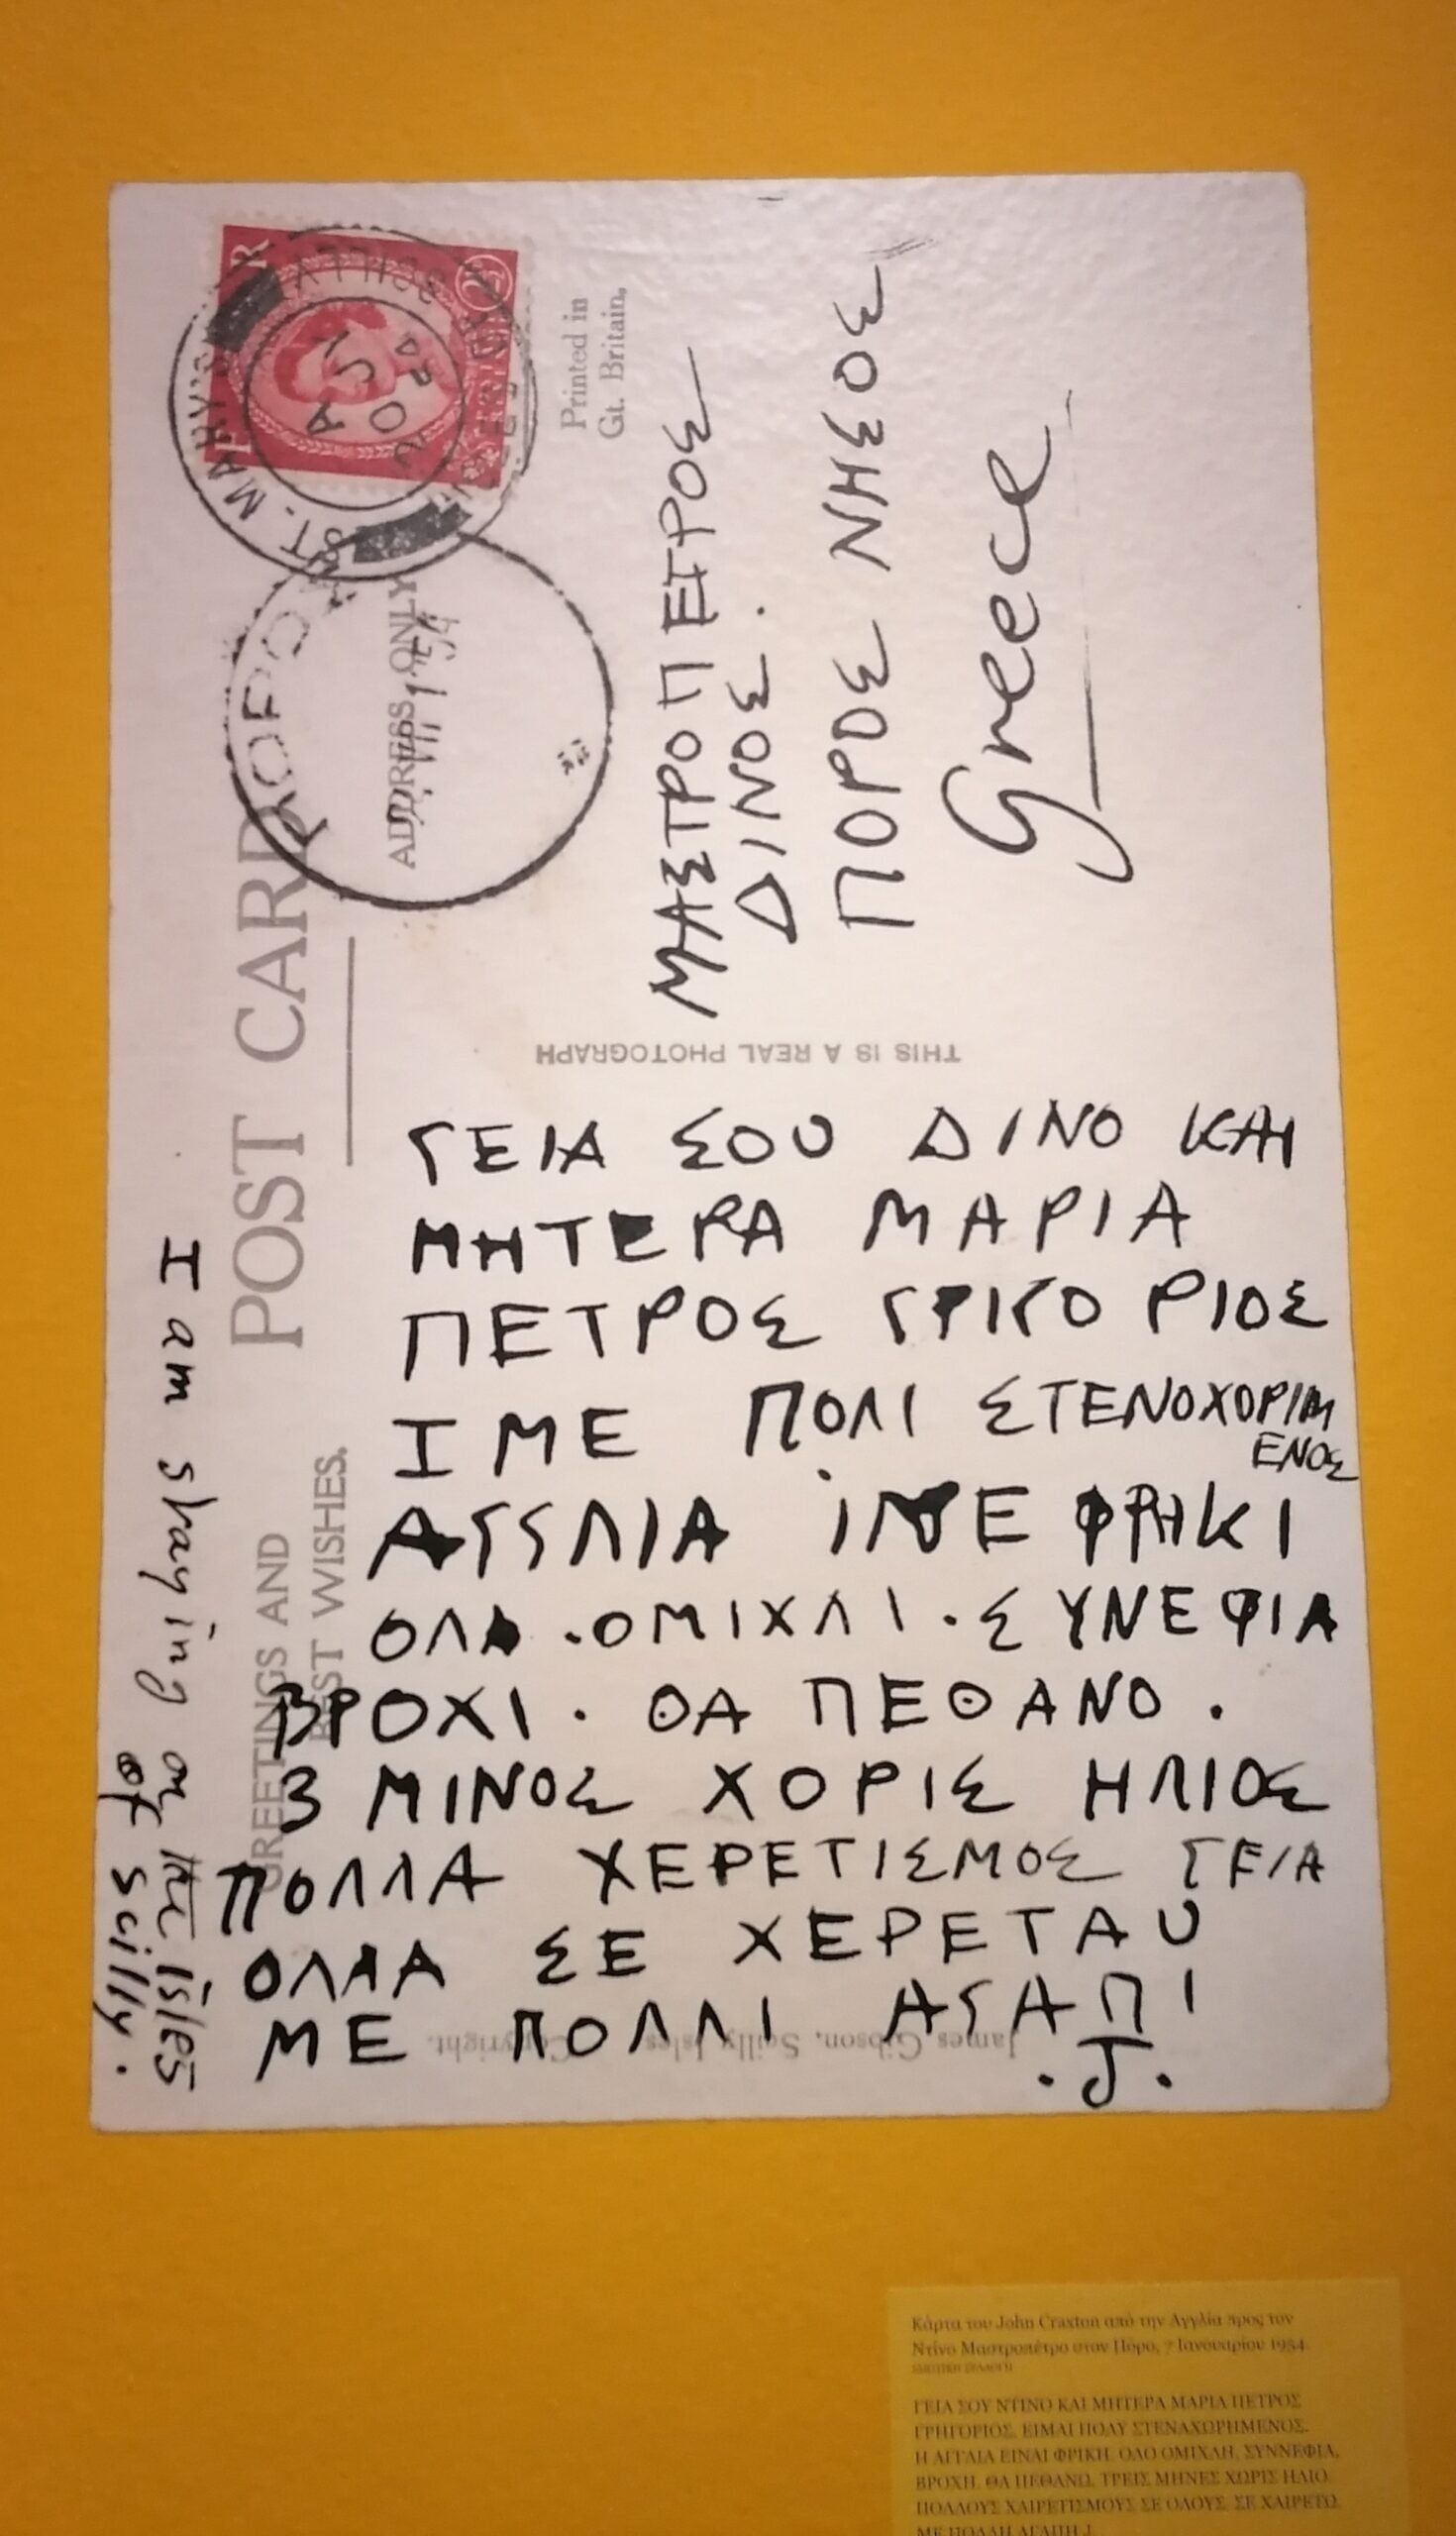 POST CARD
GREETINGS AND
BEST WISHES.
ADDRESS ONLY
Printed in
Gt. Britain.
ST. MARY'S
SCILLY
A
20 JY
54
ΜΑΣΤΡΟΠΕΤΡΟΣ
ΔΙΝΟΣ.
ΠΟΡΟΣ ΝΗΣΟΣ
Greece
THIS IS A REAL PHOTOGRAPH
ΓΕΙΑ ΣΟΥ ΔΙΝΟ ΚΑΙ
ΜΗΤΕΡΑ ΜΑΡΙΑ
ΠΕΤΡΟΣ ΓΡΙΓΟΡΙΟΣ
ΙΜΕ ΠΟΛΙ ΣΤΕΝΟΧΟΡΙΜ
ΕΝΟΣ
ΑΓΓΛΙΑ ΙΝΕ ΦΡΗΚΙ
ΟΛΑ . ΟΜΙΧΛΙ . ΣΥΝΕΦΙΑ
ΒΡΟΧΙ . ΘΑ ΠΕΘΑΝΟ .
3 ΜΙΝΟΣ ΧΟΡΙΣ ΗΛΙΟΣ
ΠΟΛΛΑ ΧΕΡΕΤΙΣΜΟΣ ΓΕΙΑ
ΟΛΛΑ ΣΕ ΧΕΡΕΤΑΥ
ΜΕ ΠΟΛΛΙ ΑΓΑΠΙ
. J .
I am staying on the isles
of scilly.
James Gibson, Scilly Isles. Copyright.
Κάρτα του John Craxton από την Αγγλία προς τον
Ντίνο Μαστροπέτρο στον Πόρο, 7 Ιανουαρίου 1954.
ΓΕΙΑ ΣΟΥ ΝΤΙΝΟ ΚΑΙ ΜΗΤΕΡΑ ΜΑΡΙΑ ΠΕΤΡΟΣ
ΓΡΗΓΟΡΙΟΣ. ΕΙΜΑΙ ΠΟΛΥ ΣΤΕΝΑΧΩΡΗΜΕΝΟΣ.
Η ΑΓΓΛΙΑ ΕΙΝΑΙ ΦΡΙΚΗ. ΟΛΟ ΟΜΙΧΛΗ, ΣΥΝΝΕΦΙΑ,
ΒΡΟΧΗ. ΘΑ ΠΕΘΑΝΩ. ΤΡΕΙΣ ΜΗΝΕΣ ΧΩΡΙΣ ΗΛΙΟ.
ΠΟΛΛΟΥΣ ΧΑΙΡΕΤΙΣΜΟΥΣ ΣΕ ΟΛΟΥΣ. ΣΕ ΧΑΙΡΕΤΩ.
ΜΕ ΠΟΛΛΗ ΑΓΑΠΗ J.